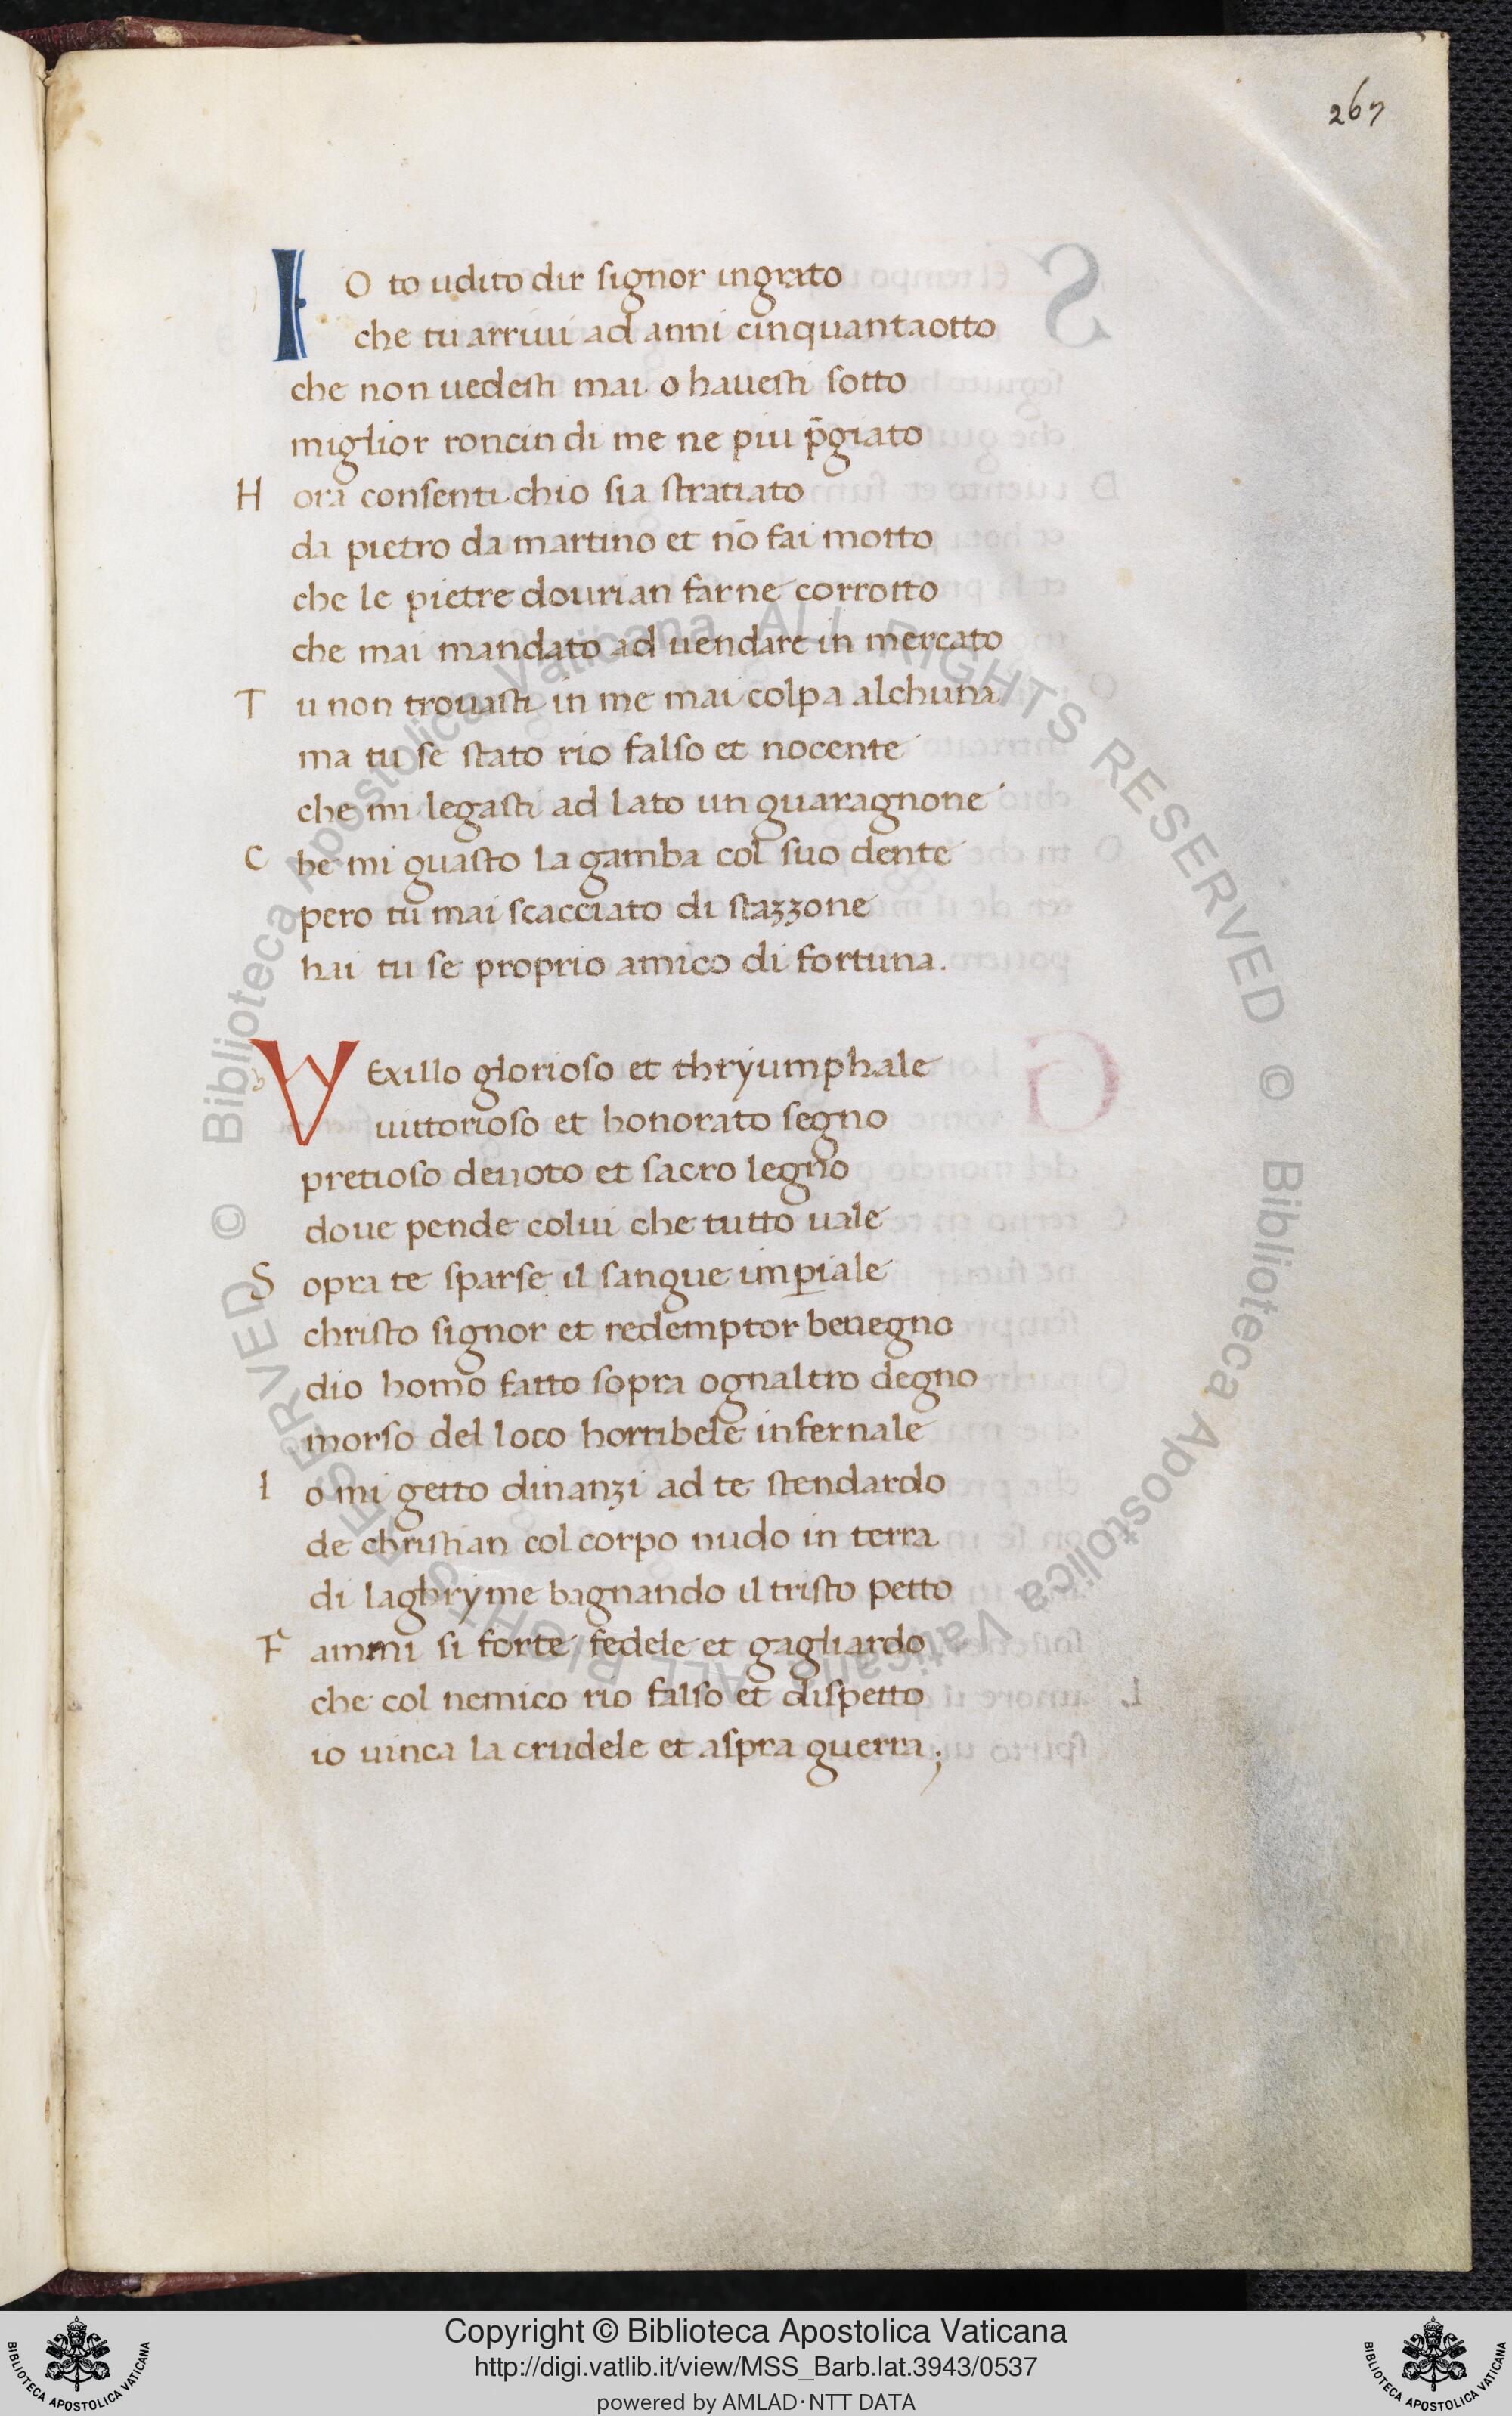 267
IO to udito dir signor ingrato
che tu arriui ad anni cinquantaotto
che non uedesti mai o hauesti sotto
miglior roncin di me ne piu p̄giato
H ora consenti chio sia stratiato
da pietro da martino et nō fai motto
che le pietre dourian farne corrotto
che mai mandato ad uendare in mercato
T u non trouasti in me mai colpa alchuna
ma tu se stato rio falso et nocente
che mi legasti ad lato un guaragnone
C he mi guasto la gamba col suo dente
pero tu mai scacciato di stazzone
hai tu se proprio amico di fortuna.
VExillo glorioso et thryumphale
uittorioso et honorato segno
pretioso deuoto et sacro legno
doue pende colui che tutto uale
S opra te sparse il sangue imꝑiale
christo signor et redemptor benegno
dio homo fatto sopra ognaltro degno
morso del loco horribele infernale
I o mi getto dinanzi ad te stendardo
de christian col corpo nudo in terra
di laghryme bagnando il tristo petto
F ammi si forte fedele et gagliardo
che col nemico rio falso et dispetto
io uinca la crudele et aspra guerra;
© Biblioteca Apostolica Vaticana ALL RIGHTS RESERVED © Biblioteca Apostolica Vaticana ALL RIGHTS RESERVED
Copyright © Biblioteca Apostolica Vaticana
http://digi.vatlib.it/view/MSS_Barb.lat.3943/0537
powered by AMLAD·NTT DATA
BIBLIOTECA APOSTOLICA VATICANA
BIBLIOTECA APOSTOLICA VATICANA